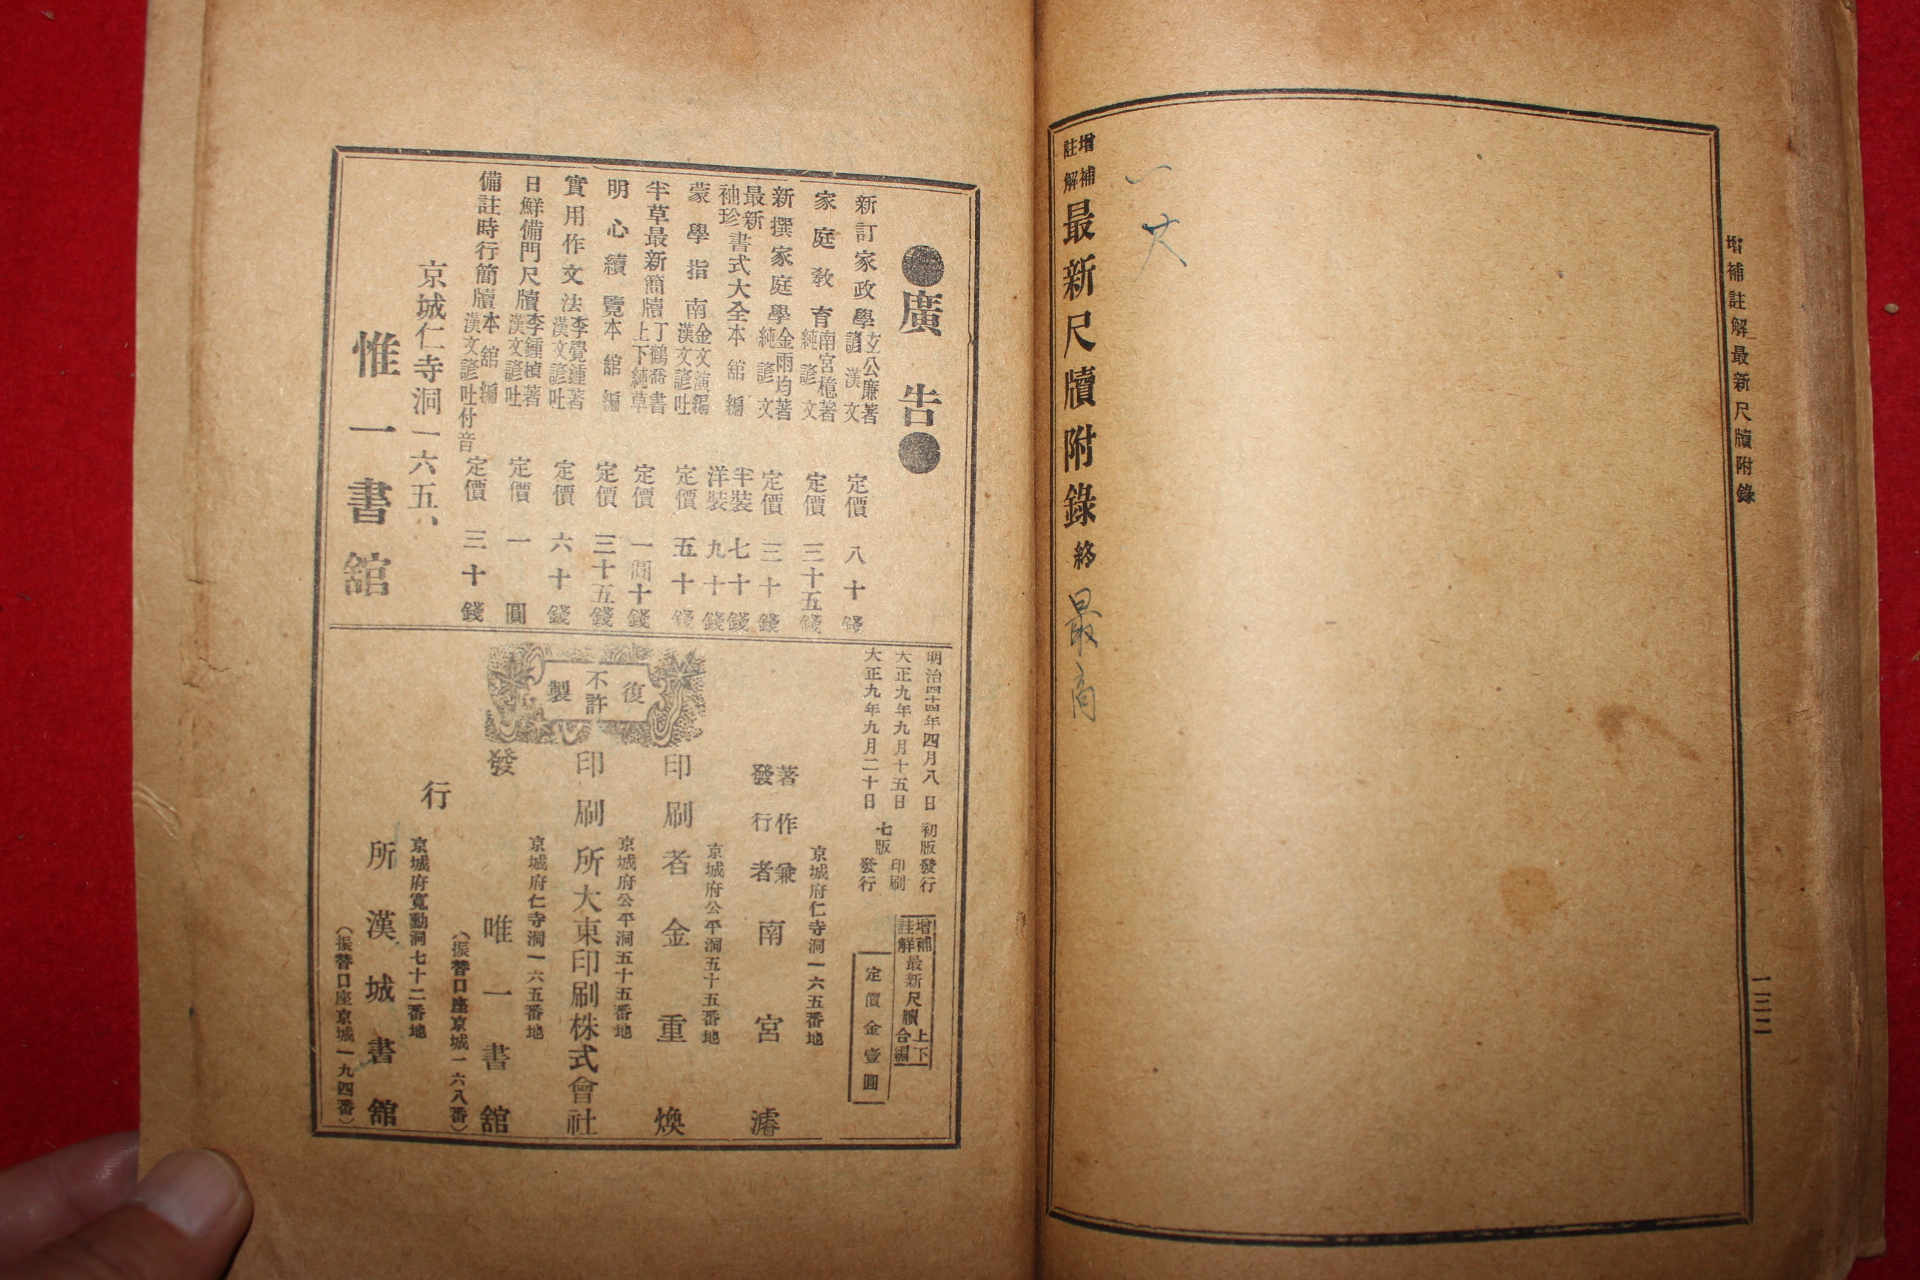 增補註解最新尺牘附錄
一三二
增補
註解
最新尺牘附錄終
最高
●廣告●
新訂家政學 諺漢文 定價 八十錢
家庭敎育 南宮檍著 純諺文 定價 三十五錢
新撰家庭學 金雨均著 純諺文 定價 三十錢
最新
袖珍
書式大全 本舘編 半裝 七十錢
洋裝 九十錢
蒙學指南 金文演編 漢文諺吐 定價 五十錢
半草最新簡牘 丁鶴喬書 上下純草 定價 一圓十錢
明心續覽 本舘編 定價 三十五錢
實用作文法 李覺鍾著 漢文諺吐 定價 六十錢
日鮮備門尺牘 李鍾楨著 漢文諺吐 定價 一圓
備註時行簡牘 本舘編 漢文諺吐付音 定價 三十錢
京城仁寺洞一六五
惟一書舘
明治四十四年四月八日 初版發行
大正九年九月十五日 印刷
大正九年九月二十日 七版發行
增補
註解
最新尺牘 上下
合編
定價金壹圓
京城府仁寺洞一六五番地
著作兼
發行者 南宮濬
京城府公平洞五十五番地
印刷者 金重煥
京城府公平洞五十五番地
印刷所 大東印刷株式會社
復製
不許
京城府仁寺洞一六五番地
發行所
唯一書舘
(振替口座京城一六八番)
京城府寬勳洞七十二番地
漢城書舘
(振替口座京城一九四番)